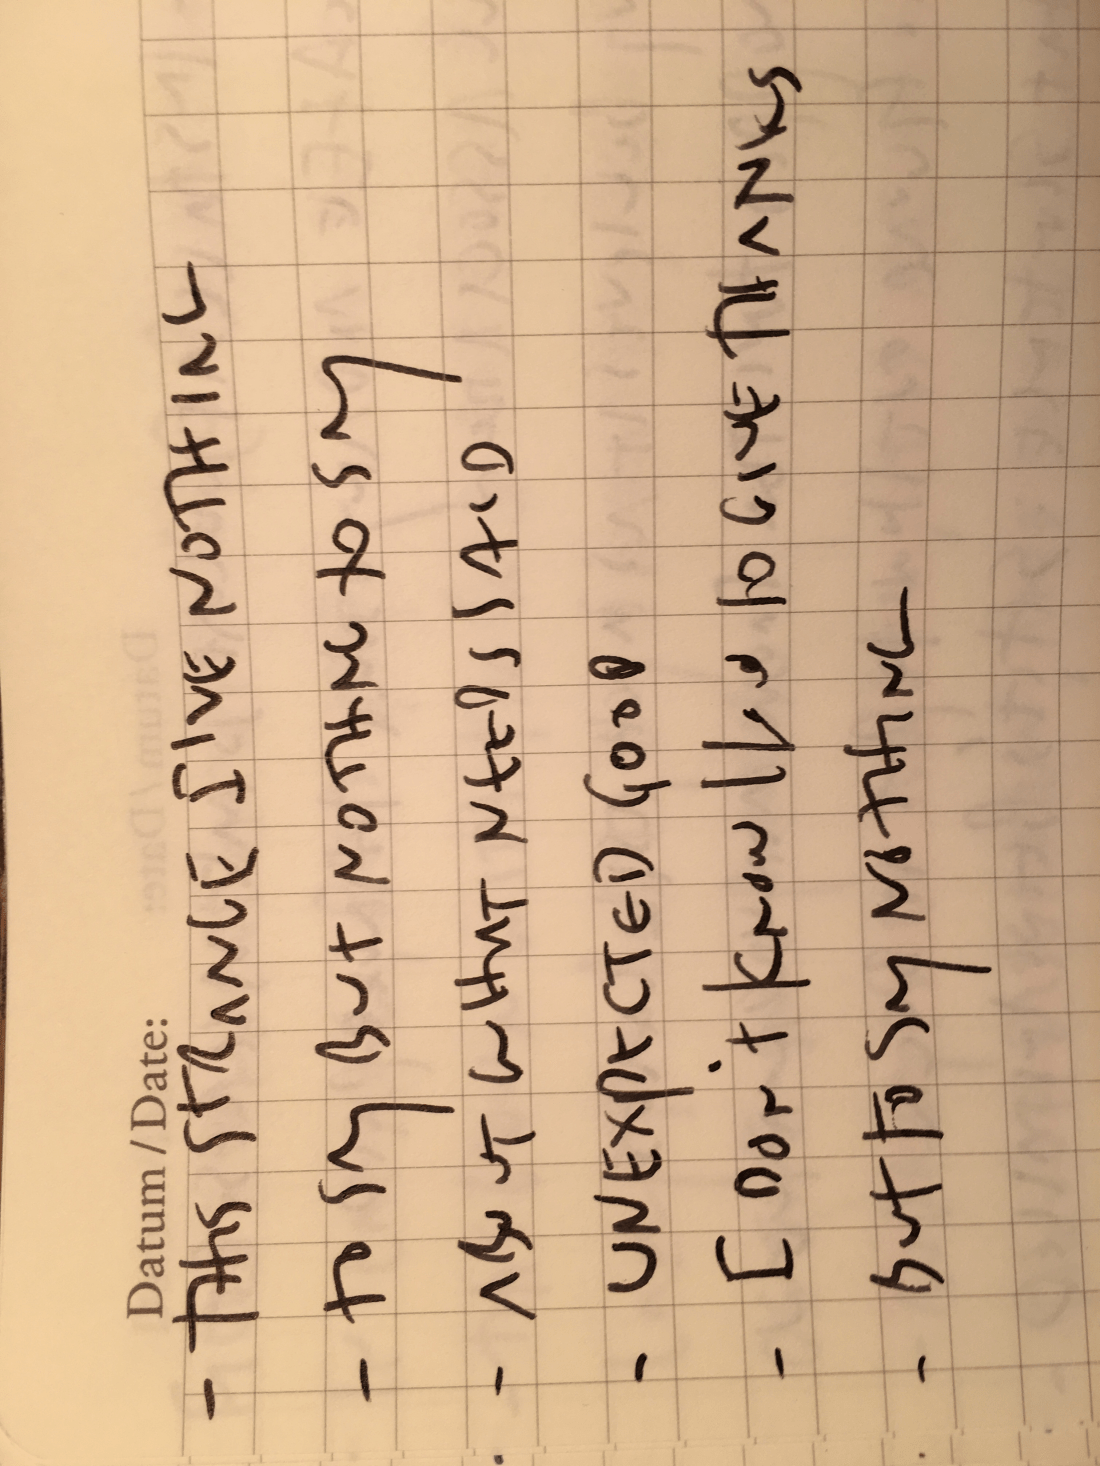 Datum / Date:
- THIS STRANGE I HAVE NOTHING
- to SAY BUT NOTHING to SAY
- ABOUT WHAT NEEDS SAID
- UNEXPECTED good
- I DON't KNOW THANKS
- but to SAY NOTHING